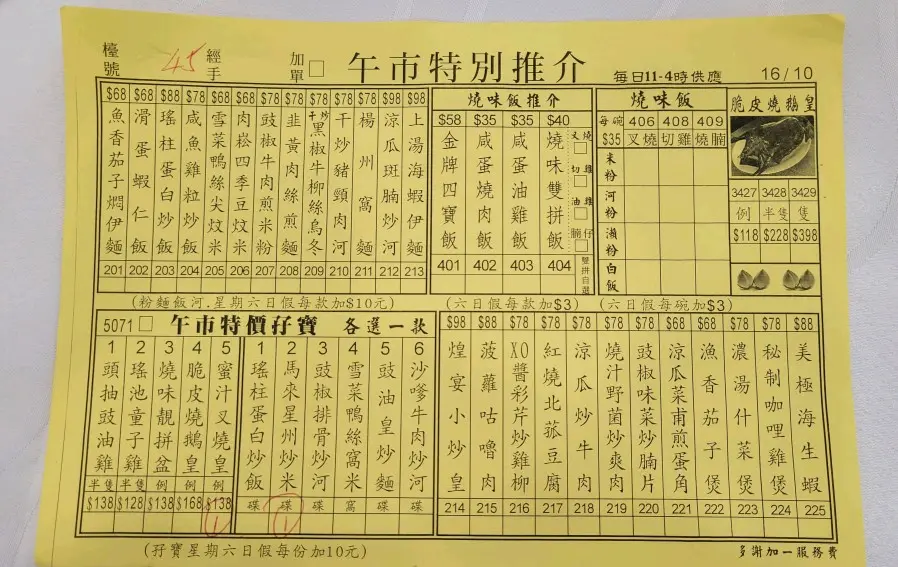 檯號 45 經手 加單□ 午市特別推介 每日11-4時供應 16/10
$68 魚香茄子燜伊麵 201
$68 滑蛋蝦仁飯 202
$88 瑤柱蛋白炒飯 203
$78 咸魚雞粒炒飯 204
$68 雪菜鴨絲尖炆米 205
$68 肉崧四季豆炆米 206
$78 豉椒牛肉煎米粉 207
$78 韮黃肉絲煎麵 208
$78 干炒黑椒牛柳絲烏冬 209
$78 干炒豬頸肉河 210
$78 楊州窩麵 211
$98 涼瓜斑腩炒河 212
$98 上湯海蝦伊麵 213
(粉麵飯河.星期六日假每款加$10元)
燒味飯推介
$58 金牌四寶飯 401
$35 咸蛋燒肉飯 402
$35 咸蛋油雞飯 403
$40 燒味雙拼飯 404
叉燒□
切雞□
油雞□
腩仔□
雙拼自選
(六日假每款加$3)
燒味飯
每碗 406 408 409
$35 叉燒 切雞 燒腩
米粉
河粉
瀨粉
白飯
(六日假每碗加$3)
脆皮燒鵝皇
3427 3428 3429
例 半隻 隻
$118 $228 $398
5071□ 午市特價孖寶 各選一款
1 頭抽豉油雞 半隻 $138
2 瑤池童子雞 半隻 $128
3 燒味靚拼盆 例 $138
4 脆皮燒鵝皇 例 $168
5 蜜汁叉燒皇 例 $138 1
1 瑤柱蛋白炒飯 碟
2 馬來星州炒米 碟 1
3 豉椒排骨炒河 碟
4 雪菜鴨絲窩米 窩
5 豉油皇炒麵 碟
6 沙嗲牛肉炒河 碟
(孖寶星期六日假每份加10元)
$98 煌宴小炒皇 214
$88 菠蘿咕嚕肉 215
$78 XO醬彩芹炒雞柳 216
$78 紅燒北菰豆腐 217
$78 涼瓜炒牛肉 218
$78 燒汁野菌炒爽肉 219
$78 豉椒味菜炒腩片 220
$68 涼瓜菜甫煎蛋角 221
$68 漁香茄子煲 222
$78 濃湯什菜煲 223
$78 秘制咖哩雞煲 224
$88 美極海生蝦 225
多謝加一服務費